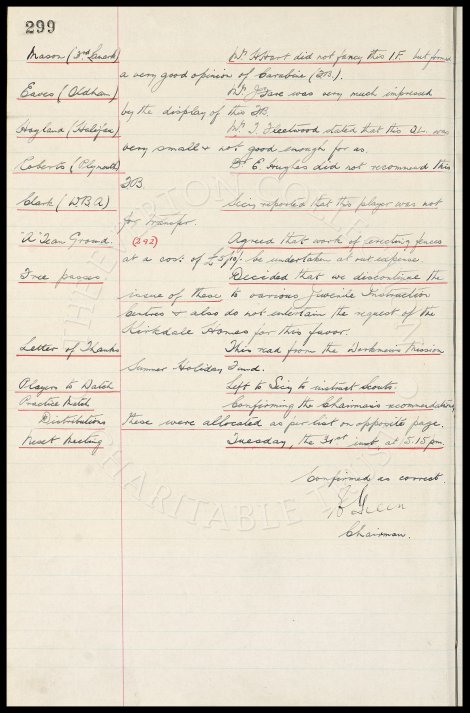 299
Mason (3rd Lanark) Mr. H. Hart did not fancy this I.F. but formed
a very good opinion of Carabine (RB.).
Eaves (Oldham) Mr. was very much impressed
by the display of this FB
Hayland (Halifax) Mr. T. Fleetwood stated that this O.L. was
very small & not good enough for us.
Roberts (Plymouth) Mr E. Hughes did not recommend this
FB.
Clark (WBA) Secy reported that this player was not
for transfer.
"A" Team Ground. (242) Agreed that work of erecting fences
at a cost of £5/10/- be undertaken at our expense
Free passes Decided that we discontinue the
issue of these to various Juvenile Instruction
Centres & also do not entertain the request of the
Kirkdale Homes for this favor.
Letter of Thanks This read from the Workmens Mission
Summer Holiday Fund.
Players to Watch Left to Secy to instruct scouts.
Practice Match Confirming the Chairmans recommendations
Distributions these were allocated as per list on opposite page.
Next Meeting Tuesday, the 31st inst, at 5.15 pm.
Confirmed as correct.
Green
Chairman.
THE EVERTON COLLECTION
CHARITABLE TRUST